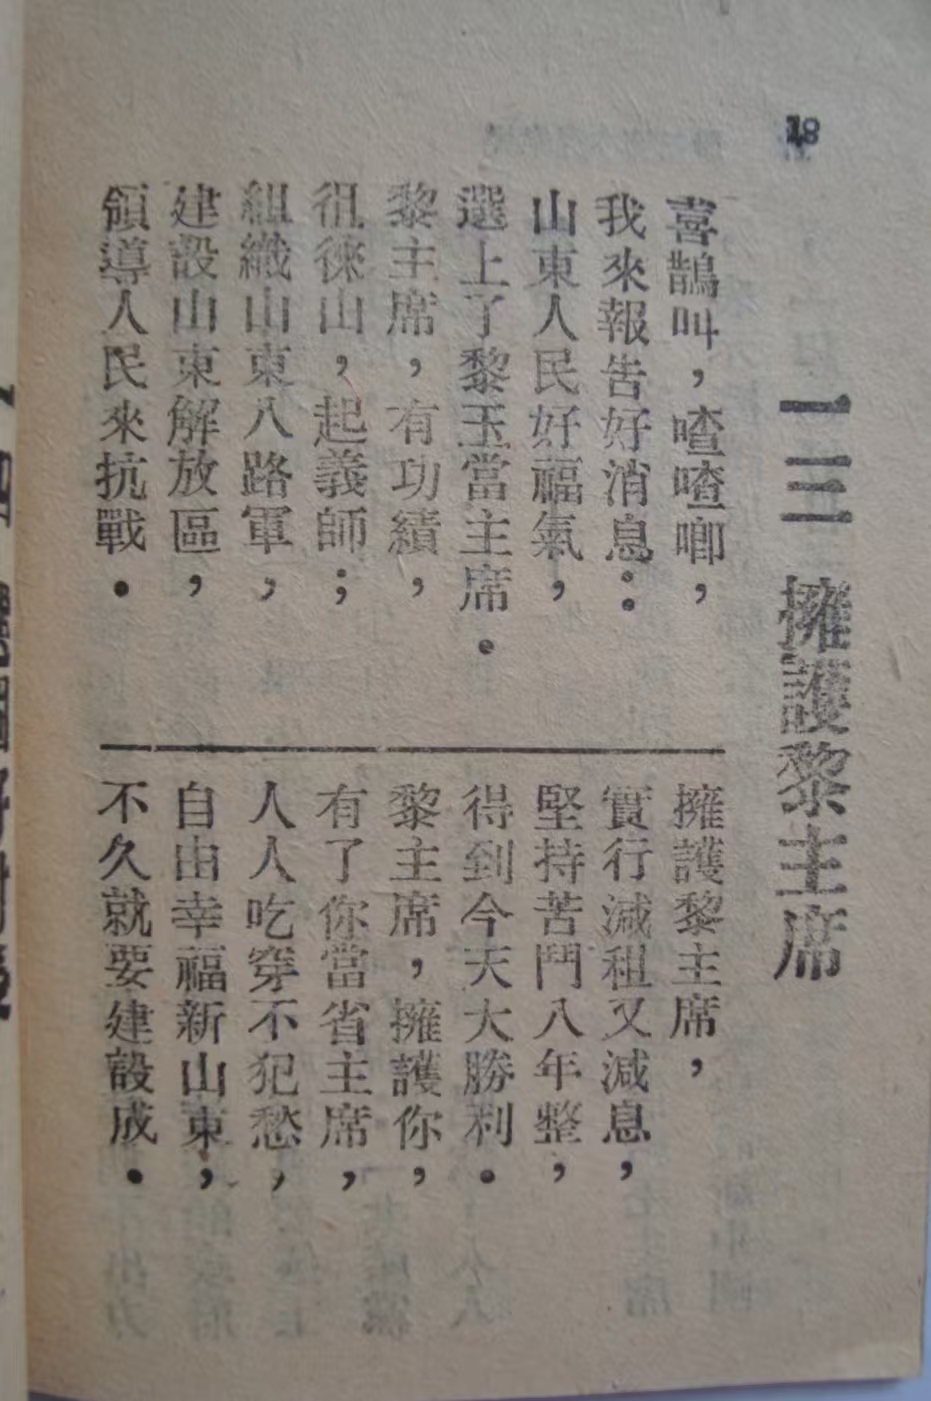 18
一三 擁護黎主席
喜鵲叫，喳喳啷，
我來報告好消息：
山東人民好福氣，
選上了黎玉當主席．
黎主席，有功績，
徂徠山，起義師；
組織山東八路軍，
建設山東解放區，
領導人民來抗戰．
擁護黎主席，
實行減租又減息，
堅持苦鬥八年整，
得到今天大勝利．
黎主席，擁護你，
有了你當省主席，
人人吃穿不犯愁，
自由幸福新山東，
不久就要建設成．